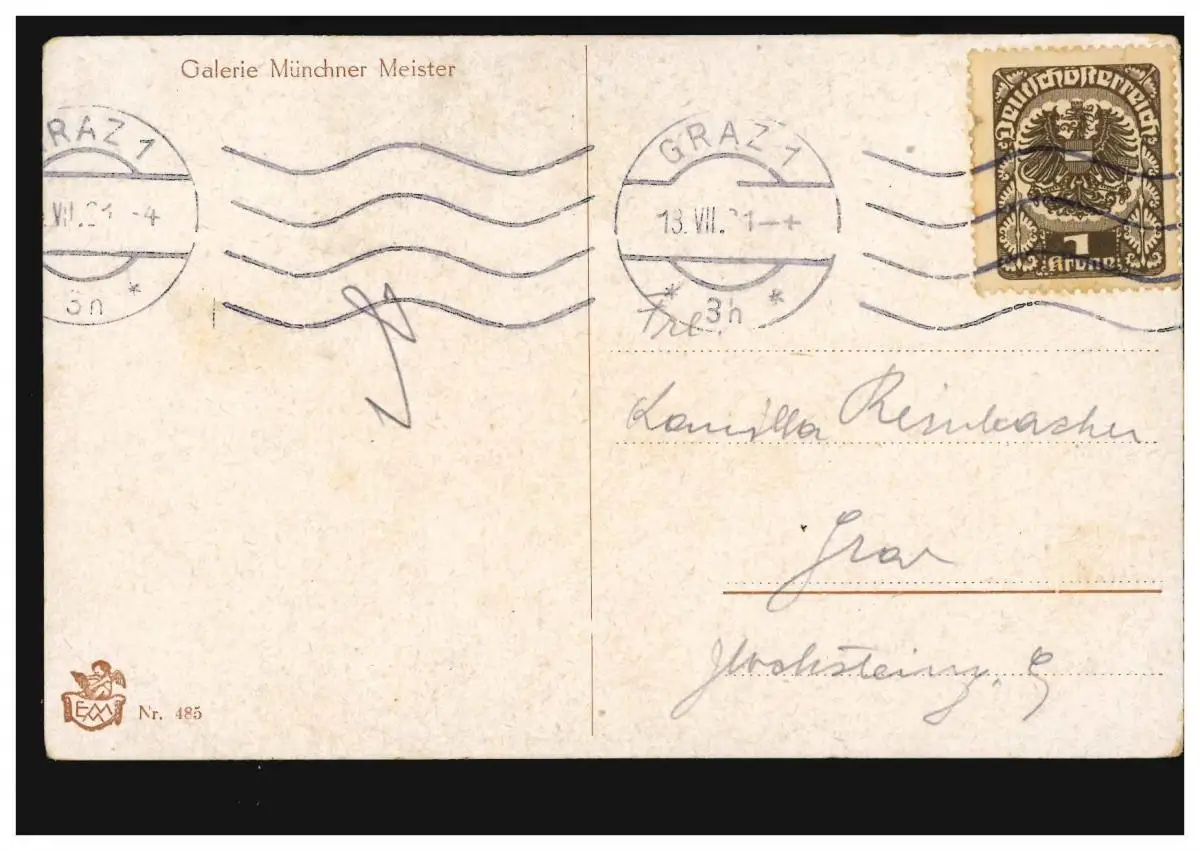 Galerie Münchner Meister
RAZ 1
VII. 21 -4
3h *
GRAZ 1
13. VII. 21-+
* 3h *
Deutschösterreich
1
Krone
Frl.
Kamilla Reinbacher
Graz
EMM
Nr. 485